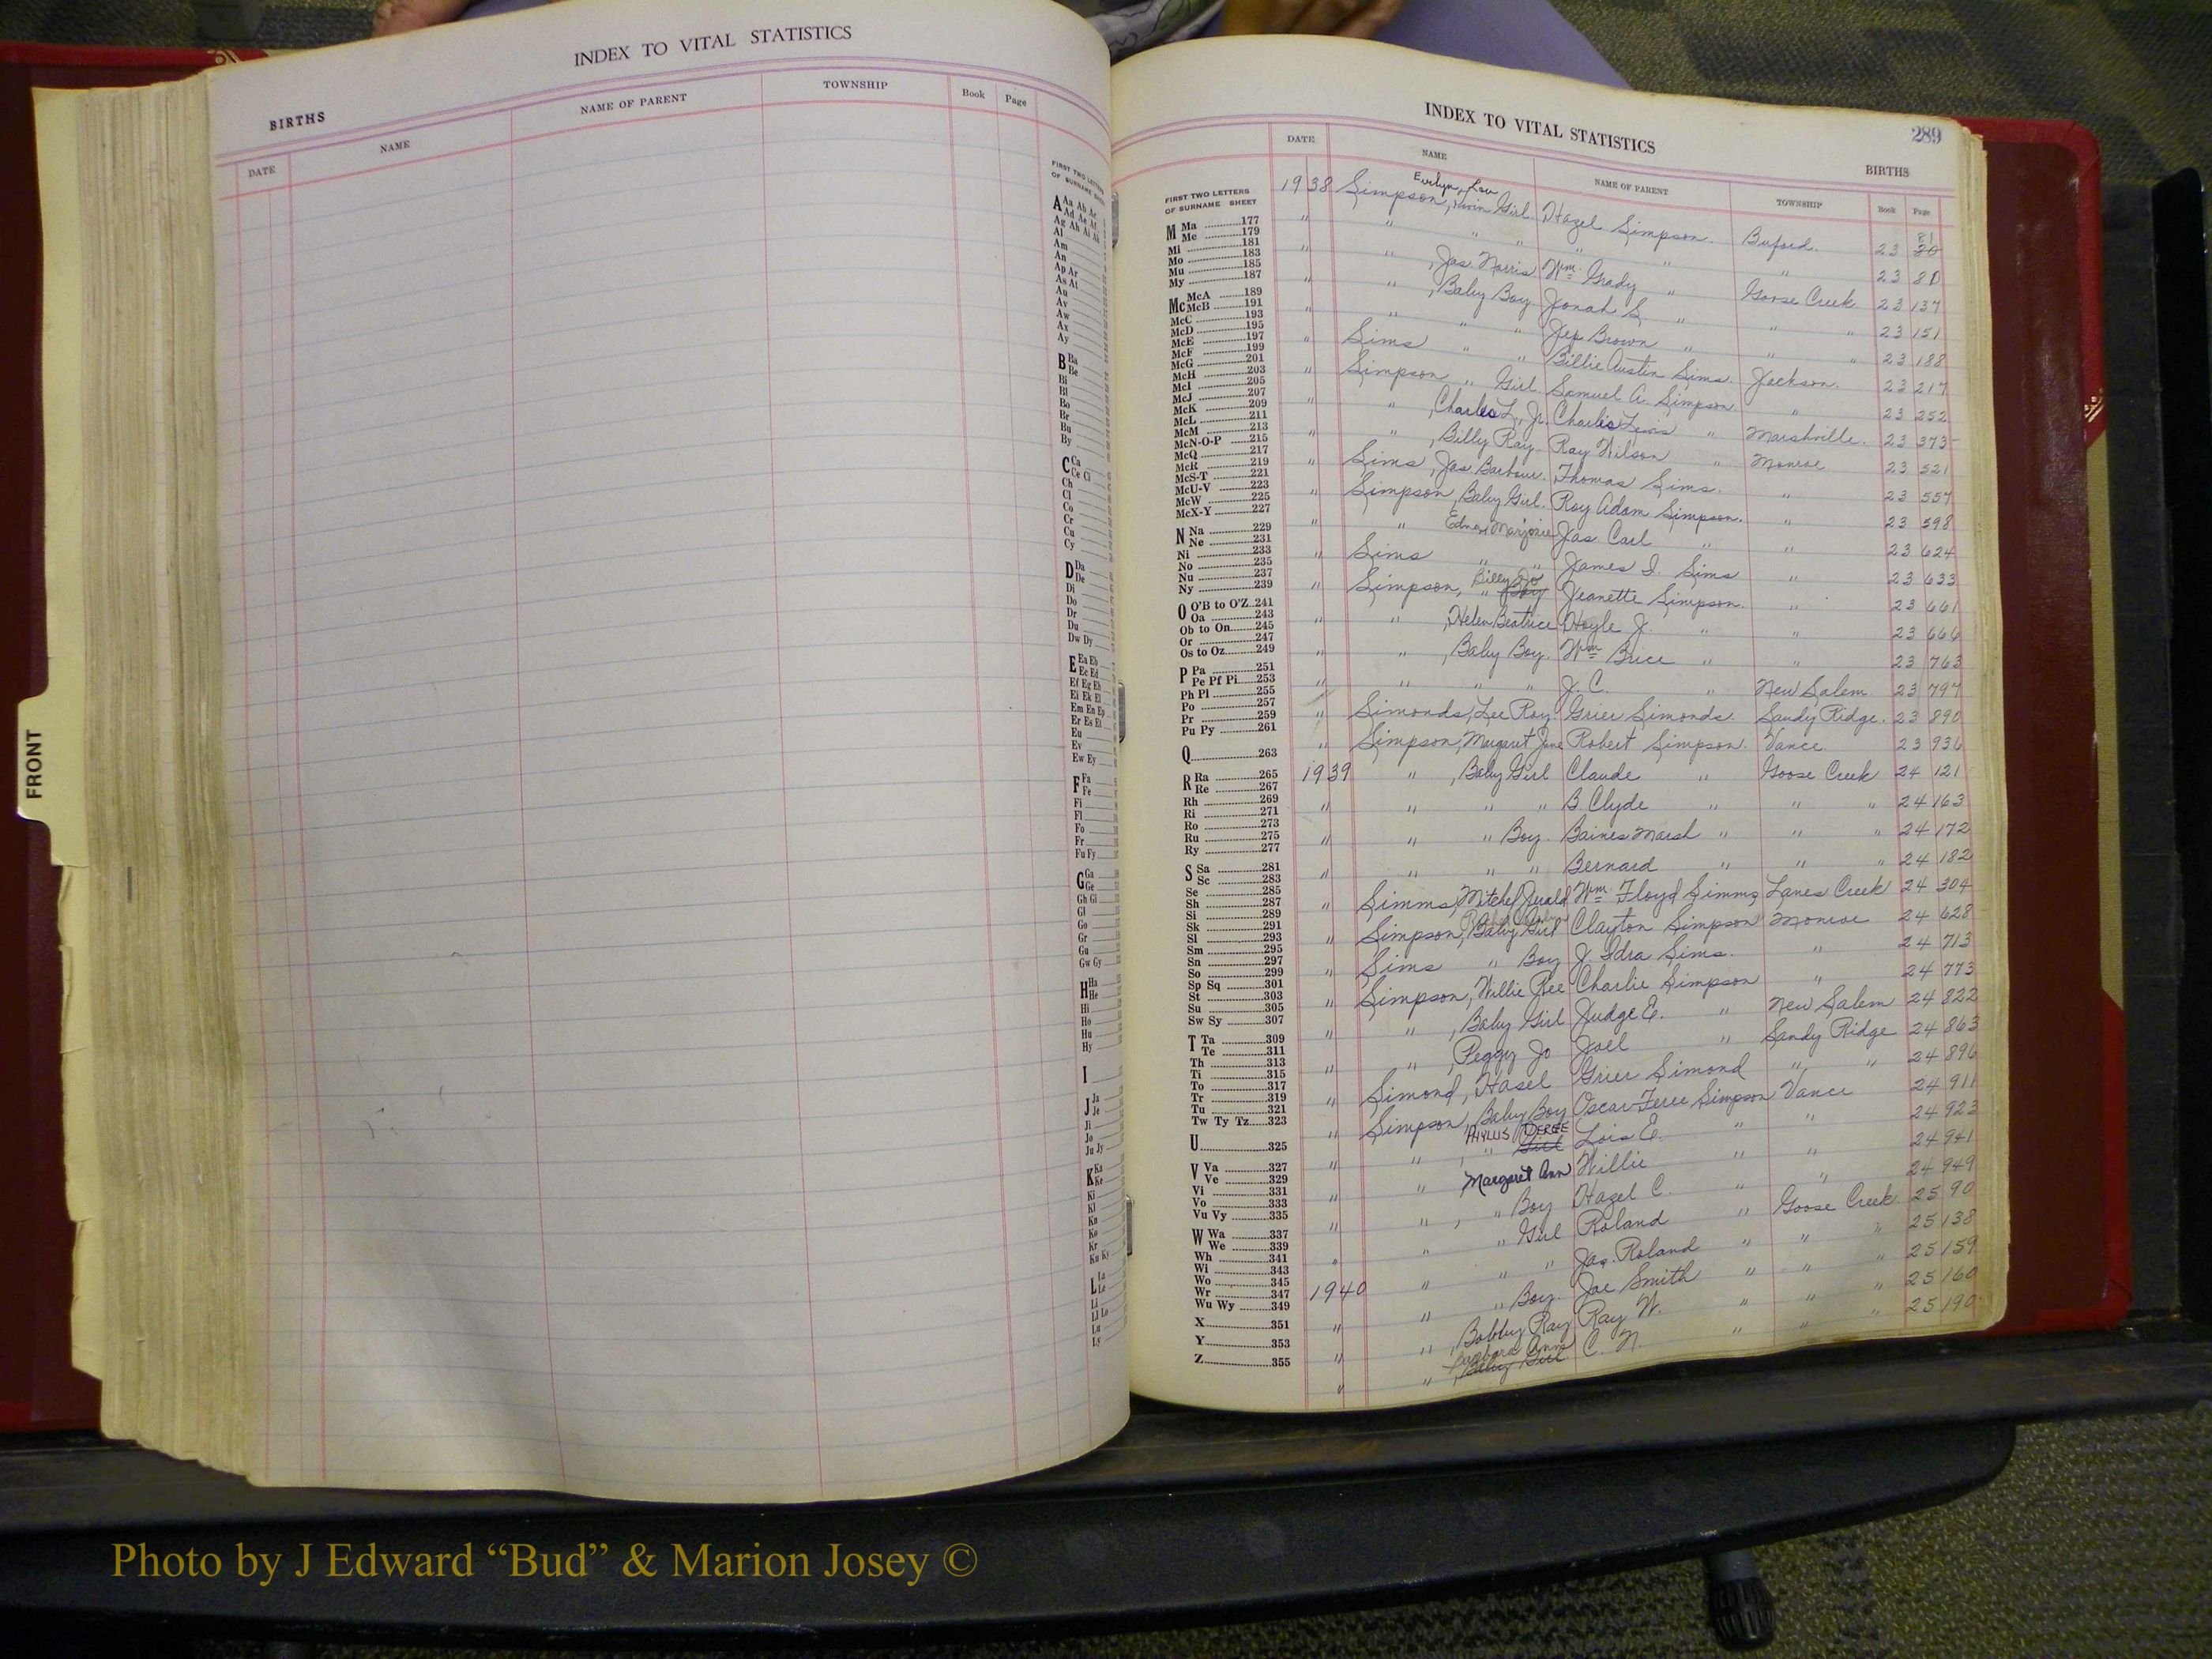 INDEX TO VITAL STATISTICS
BIRTHS
DATE NAME NAME OF PARENT TOWNSHIP Book Page
FIRST TWO LETTERS
OF SURNAME SHEET
A Aa Ab Ac
Ad Ae Af
Ag Ah Ai Ak
Al
Am
An
Ap Ar
As At
Au
Av
Aw
Ax
Ay
B Ba
Be
Bi
Bl
Bo
Br
Bu
By
C Ca
Ce Ci
Ch
Cl
Co
Cr
Cu
Cy
D Da
De
Di
Do
Dr
Du
Dw Dy
E Ea Eb
Ec Ed
Ef Eg Eh
Ei Ek El
Em En Ep
Er Es Et
Eu
Ev
Ew Ey
F Fa
Fe
Fi
Fl
Fo
Fr
Fu Fy
G Ga
Ge
Gh Gi
Gl
Go
Gr
Gu
Gw Gy
H Ha
He
Hi
Ho
Hu
Hy
I
J Ja
Je
Ji
Jo
Ju Jy
K Ka
Ke
Ki
Kl
Kn
Ko
Kr
Ku Ky
L La
Le
Li
Ll Lo
Lu
Ly
INDEX TO VITAL STATISTICS
289
BIRTHS
DATE NAME NAME OF PARENT TOWNSHIP Book Page
FIRST TWO LETTERS
OF SURNAME SHEET
M Ma 177
Me 179
Mi 181
Mo 183
Mu 185
My 187
Mc McA 189
McB 191
McC 193
McD 195
McE 197
McF 199
McG 201
McH 203
McI 205
McJ 207
McK 209
McL 211
McM 213
McN-O-P 215
McQ 217
McR 219
McS-T 221
McU-V 223
McW 225
McX-Y 227
N Na 229
Ne 231
Ni 233
No 235
Nu 237
Ny 239
O O'B to O'Z 241
Oa 243
Ob to On 245
Or 247
Os to Oz 249
P Pa 251
Pe Pf Pi 253
Ph Pl 255
Po 257
Pr 259
Pu Py 261
Q 263
R Ra 265
Re 267
Rh 269
Ri 271
Ro 273
Ru 275
Ry 277
S Sa 281
Sc 283
Se 285
Sh 287
Si 289
Sk 291
Sl 293
Sm 295
Sn 297
So 299
Sp Sq 301
St 303
Su 305
Sw Sy 307
T Ta 309
Te 311
Th 313
Ti 315
To 317
Tr 319
Tu 321
Tw Ty Tz 323
U 325
V Va 327
Ve 329
Vi 331
Vo 333
Vu Vy 335
W Wa 337
We 339
Wh 341
Wi 343
Wo 345
Wr 347
Wu Wy 349
X 351
Y 353
Z 355
Evelyn Lou
1938 Simpson, Twin Girl. Hazel Simpson. Buford. 23 81
" " " " " " " 23 80
" " , Jas. Norris Wm. Grady " Goose Creek 23 137
" " , Baby Boy. Jonah S. " " " 23 151
" " " " Jep Brown " " " 23 188
" Sims " " Billie Austin Sims. Jackson. 23 217
" Simpson " Girl. Samuel A. Simpson. " 23 252
" " , Charles L., Jr. Charles Lewis " Marshville. 23 373
" " , Billy Ray. Ray Wilson " Monroe 23 521
" Sims, Jas Barbour. Thomas Sims. " 23 557
" Simpson, Baby Girl. Roy Adam Simpson. " 23 598
" " Edna Marjorie Jas. Carl " " 23 624
" Sims " " James I. Sims " 23 633
" Simpson, " Billy Jo Boy Jeanette Simpson. " 23 661
" " , Helen Beatrice Hoyle J. " " 23 666
" " , Baby Boy. Wm Brice " " 23 763
" " " " J. C. " New Salem 23 797
" Simonds, Lee Roy. Grier Simonds. Sandy Ridge. 23 890
" Simpson, Margaret Jane Robert Simpson. Vance. 23 936
1939 " , Baby Girl Claude " Goose Creek 24 121
" " " " B. Clyde " " " 24 163
" " " Boy. Baines Marsh " " " 24 172
" " " " Bernard " " " 24 182
" Simms, Mitchel Jerald Wm. Floyd Simms Lanes Creek 24 304
" Simpson, Baby Girl Clayton Simpson Monroe 24 628
" Sims " Boy J. Idra Sims. " 24 713
" Simpson, Willie Ree Charlie Simpson " 24 773
" " , Baby Girl Judge E. " New Salem 24 822
" " , Peggy Jo Joel " Sandy Ridge 24 863
" Simond, Hasel Grier Simond " " 24 896
" Simpson, Baby Boy Oscar Feree Simpson Vance 24 911
" " , " PHYLLIS Girl Lois E. " " 24 923
" " , Margaret Ann Willie " " 24 941
" " , " Boy Hazel C. " " 24 949
" " " Girl Roland " Goose Creek 25 90
1940 " " " Jas. Roland " " " 25 138
" " " Boy. Joe Smith " " " 25 159
" " , Bobby Ray Ray W. " " " 25 160
" " , Barbara Ann Baby Girl C. N. " " " 25 190
FRONT
Photo by J Edward “Bud” & Marion Josey ©